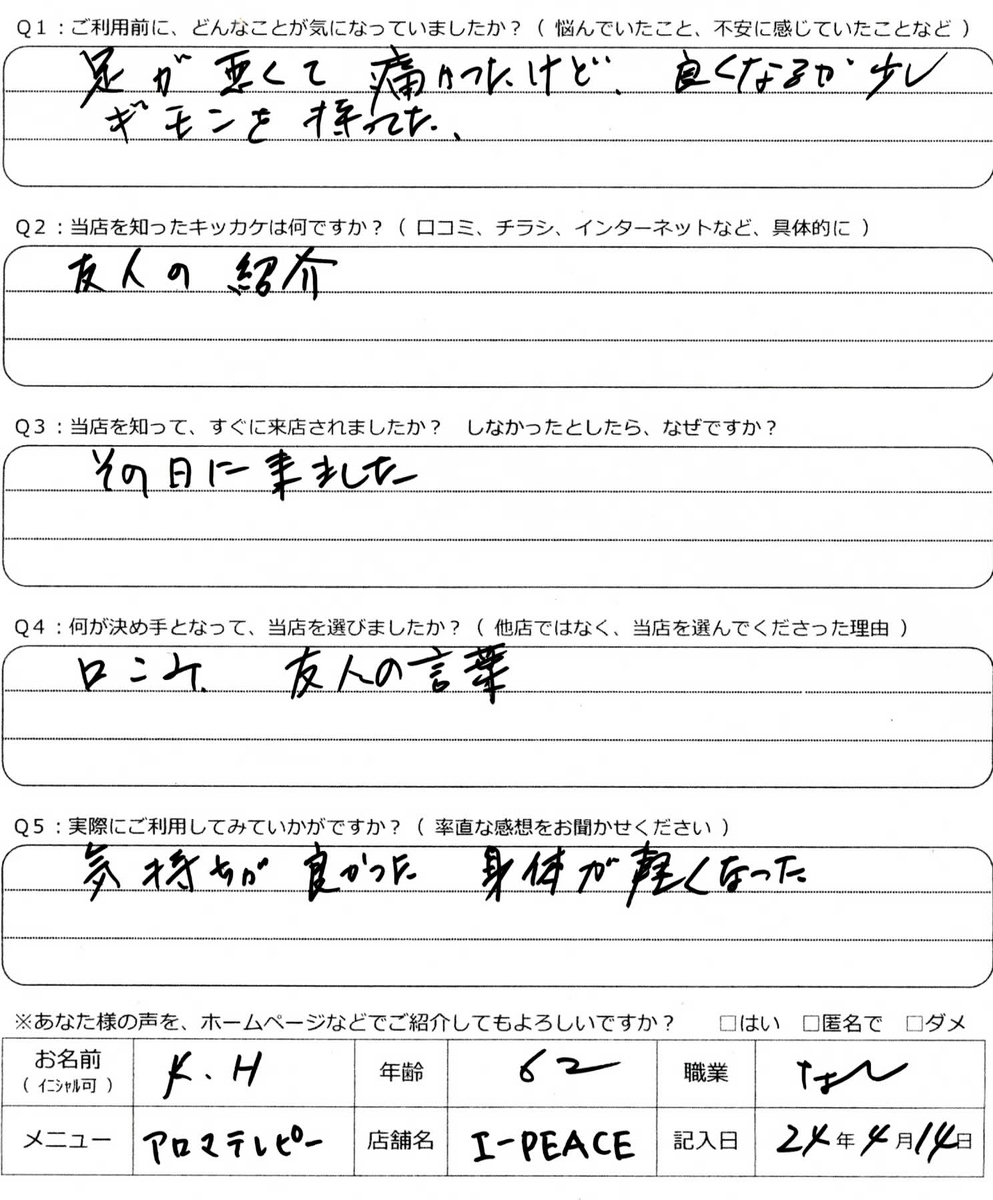 Q1：ご利用前に、どんなことが気になっていましたか？（ 悩んでいたこと、不安に感じていたことなど ）
足が悪くて 痛かったけど、 良くなるか少し
ギモンを持ってた、
Q2：当店を知ったキッカケは何ですか？（ 口コミ、チラシ、インターネットなど、具体的に ）
友人の 紹介
Q3：当店を知って、すぐに来店されましたか？ しなかったとしたら、なぜですか？
その日に来ました
Q4：何が決め手となって、当店を選びましたか？（ 他店ではなく、当店を選んでくださった理由 ）
口こみ、 友人の言葉
Q5：実際にご利用してみていかがですか？（ 率直な感想をお聞かせください ）
気持ちが良かった 身体が軽くなった
※あなた様の声を、ホームページなどでご紹介してもよろしいですか？ □はい □匿名で □ダメ
お名前（ ｲﾆｼｬﾙ可 ） K.H 年齢 62 職業 なし
メニュー アロマテレピー 店舗名 I-PEACE 記入日 24年4月14日